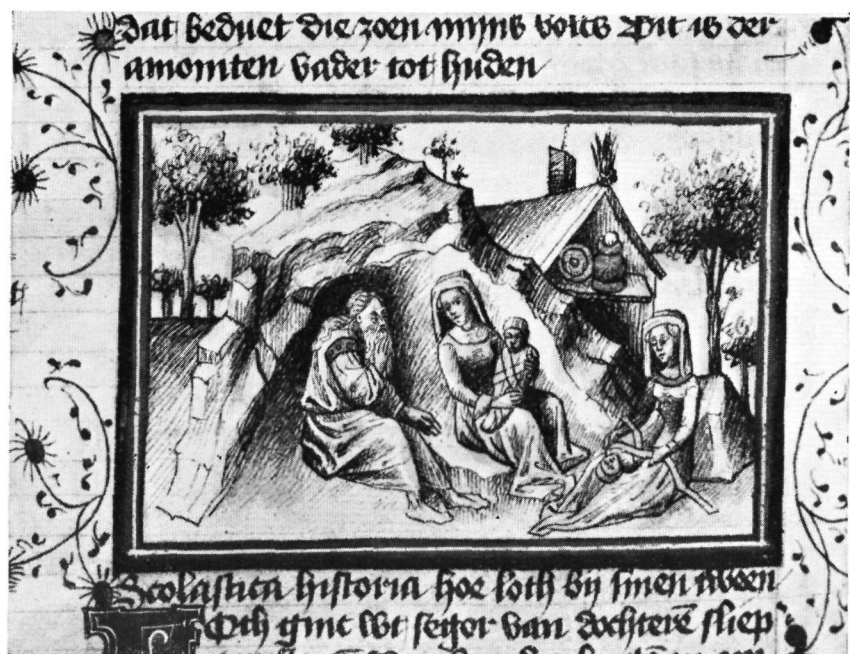 dat beduet die zoen mijns volcs Dit is der
amomten vader tot huden
Scolastica historia hoe loth bij sinen tween
Oth ginc wt segor van dochterē sliep